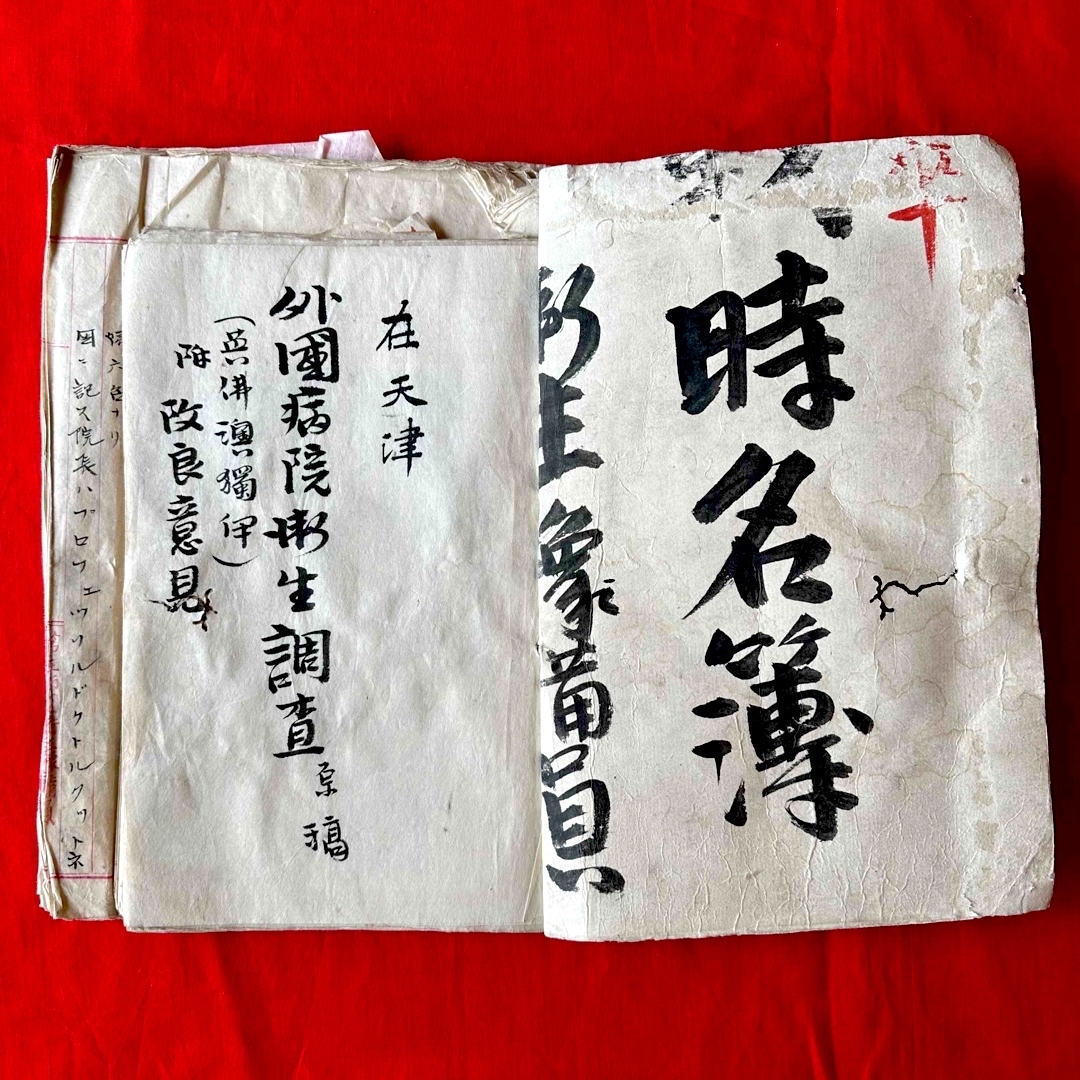 時名簿
衛生豫備員
在天津
外國病院衛生調査原稿
(英佛澳獨伊)
附
改良意見
六名ナリ
因ニ記ス院長ハプロフェッソルドクトルクットネ